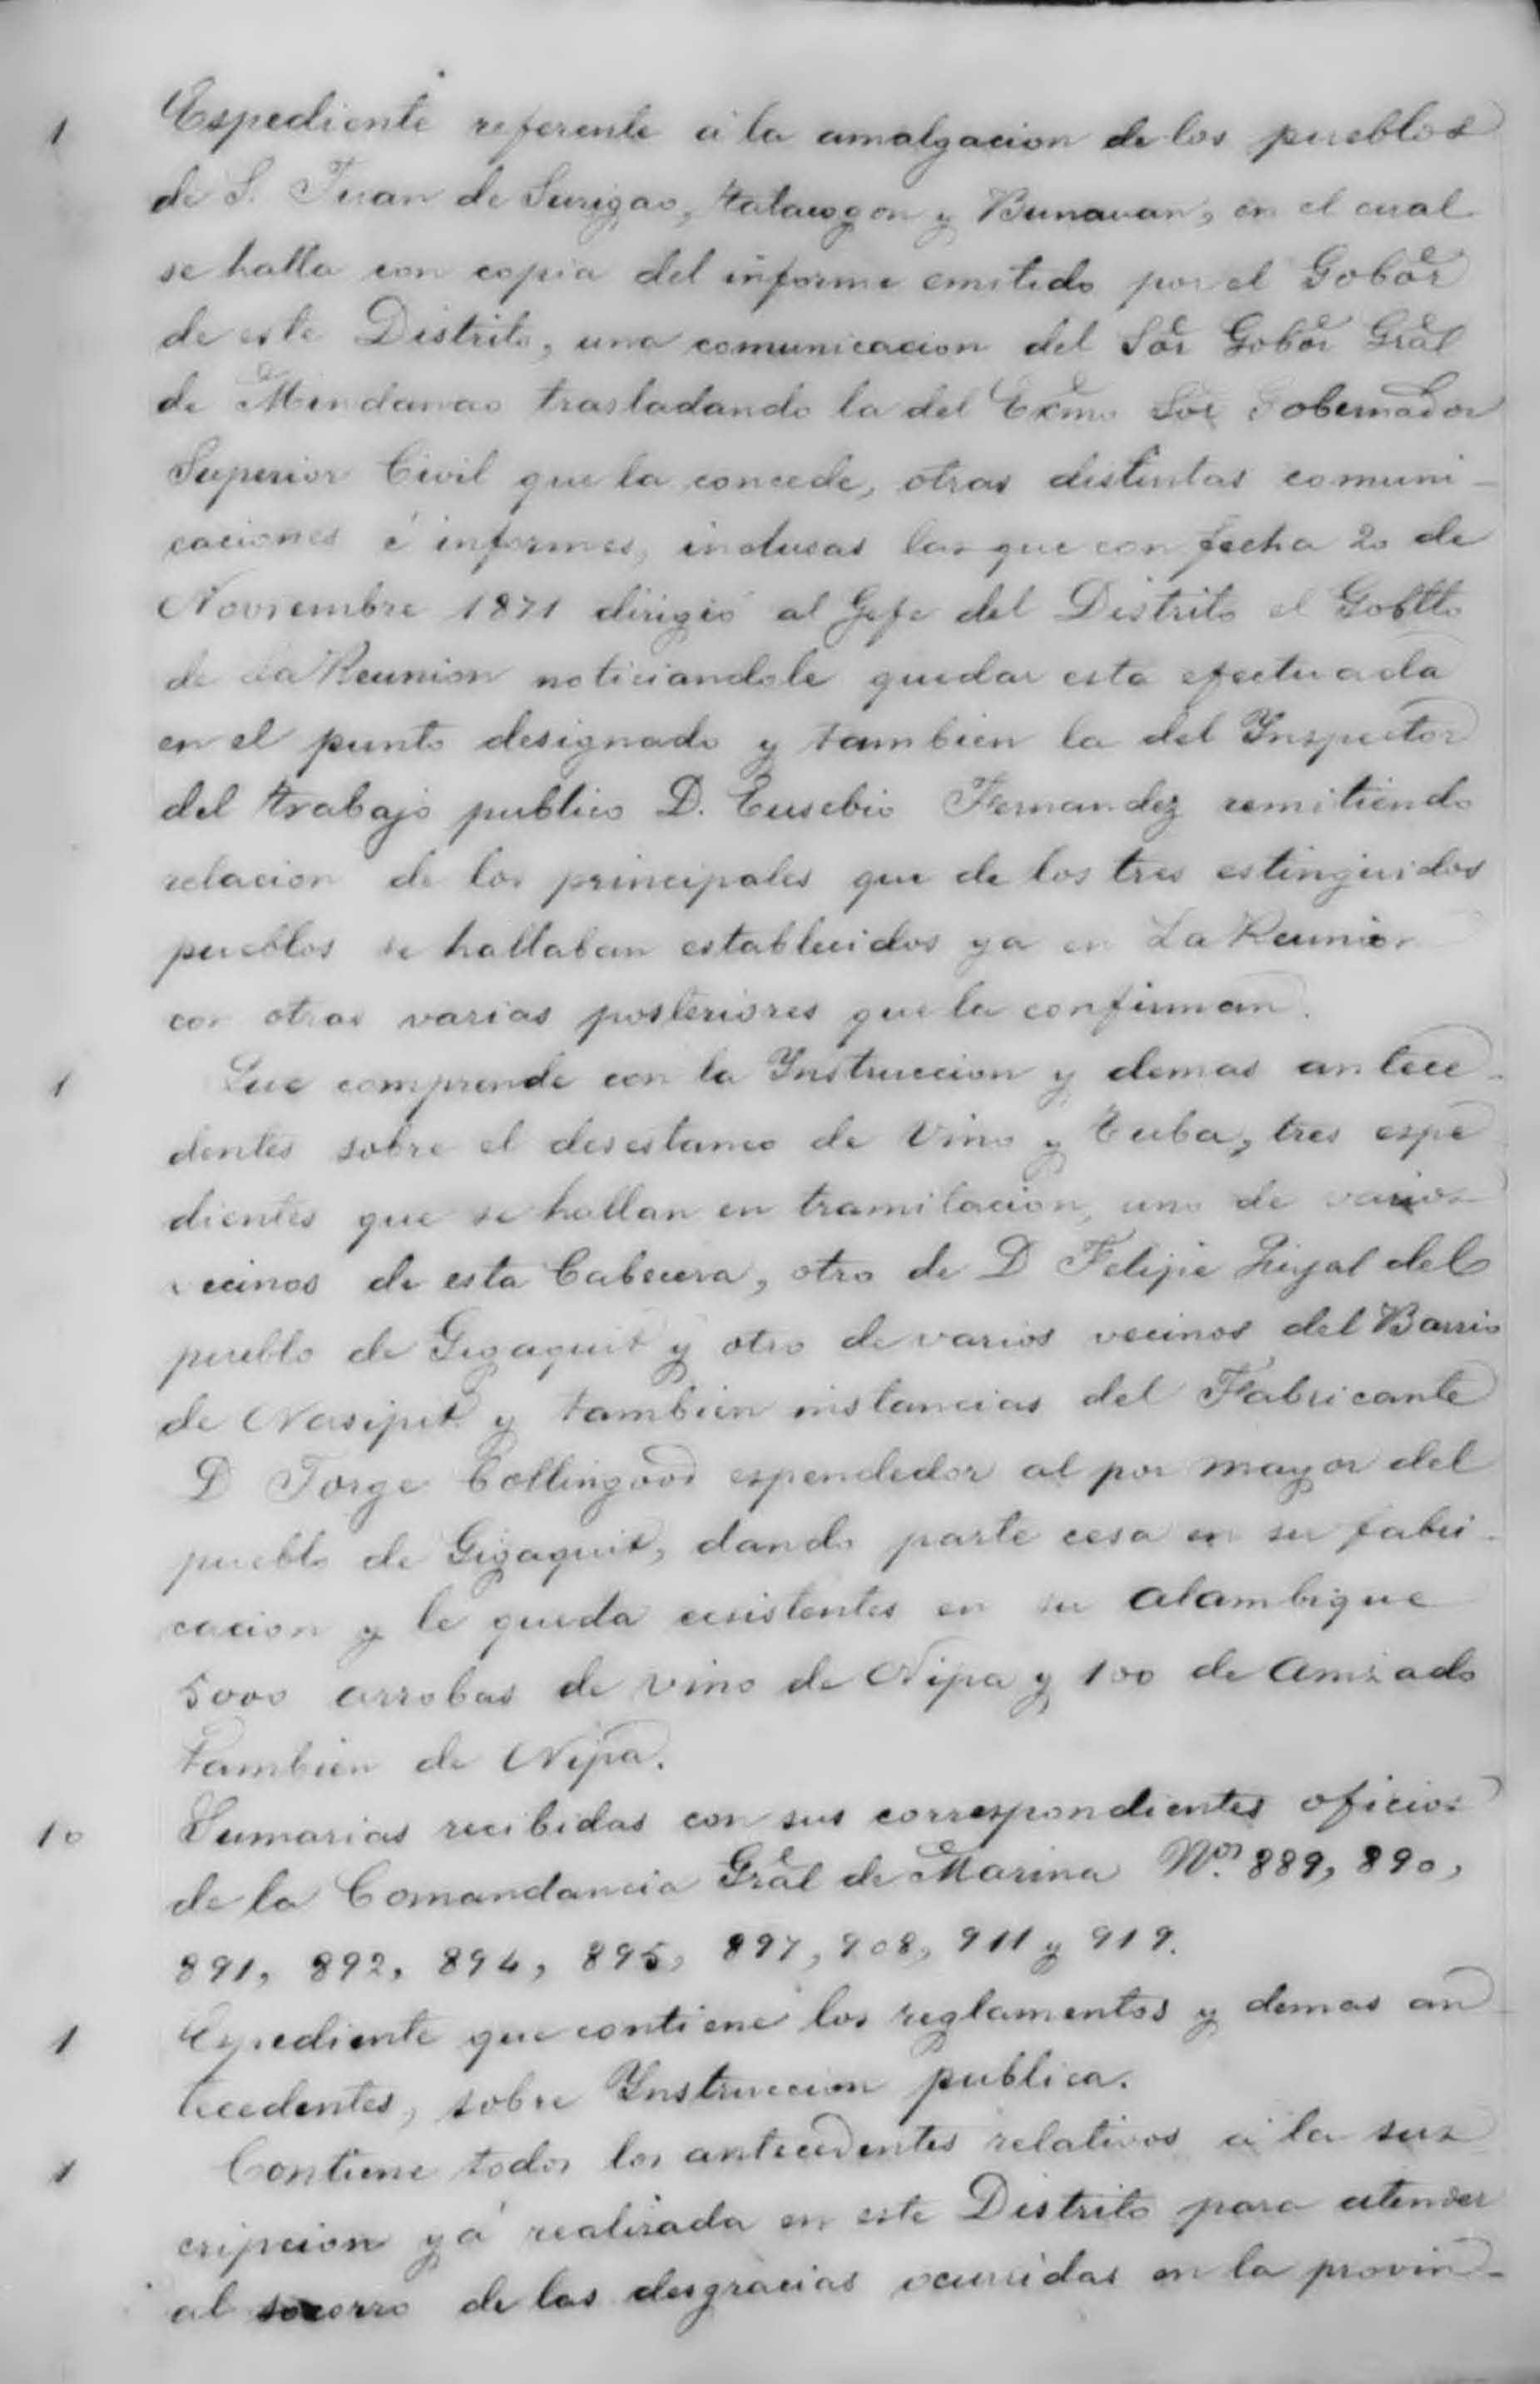 1 Espediente referente á la amalgacion de los pueblos
de S. Juan de Surigao, Talacogon y Bunauan, en el cual
se halla con copia del informe emitido por el Gobor
de este Distrito, una comunicacion del Sor Gobor Gral
de Mindanao trasladando la del Exmo Sor Gobernador
Superior Civil que la concede, otras distintas comuni-
caciones é informes, inclusas las que con fecha 20 de
Noviembre 1871 dirigió al Gefe del Distrito el Gobllo
de La Reunion noticiandole quedar esta efectuada
en el punto designado y tambien la del Ynspector
del trabajo publico D. Eusebio Fernandez remitiendo
relacion de los principales que de los tres estinguidos
pueblos se hallaban establecidos ya en La Reunion
con otras varias posteriores que la confirman.
1 Que comprende con la Ynstruccion y demas antece-
dentes sobre el desestanco de Vino y Tuba, tres espe
dientes que se hallan en tramitacion, uno de varios
vecinos de esta Cabecera, otro de D Felipe del
pueblo de Gigaquit y otro de varios vecinos del Barrio
de Nasipit y tambien instancias del Fabricante
D Jorge Collingood espendedor al por mayor del
pueblo de Gigaquit, dando parte cesa en su fabri-
cacion y le queda ecsistentes en su alambique
5000 arrobas de vino de Nipa y 100 de anisado
tambien de Nipa.
10 Sumarias recibidas con sus correspondientes oficios
de la Comandancia Gral de Marina Nos. 889, 890,
891, 892, 894, 895, 897, 908, 911 y 919.
1 Espediente que contiene los reglamentos y demas an
tecedentes, sobre Ynstruccion publica.
1 Contiene todos los antecedentes relativos á la sus
cripcion yá realizada en este Distrito para atender
al socorro de las desgracias ocurridas en la provin-